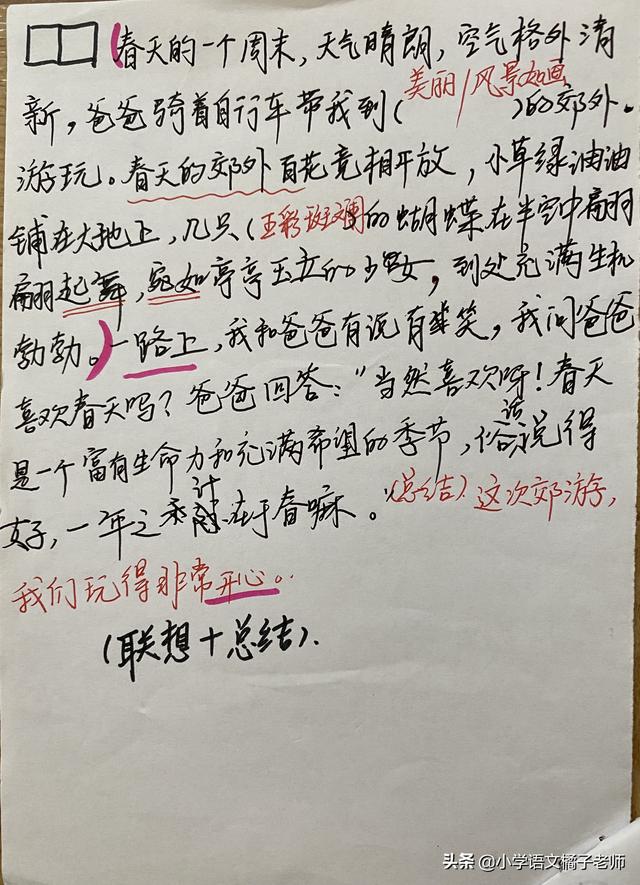 春天的一个周末，天气晴朗，空气格外清
美丽/风景如画
新，爸爸骑着自行车带我到( )的郊外。
游玩。春天的郊外百花竞相开放，小草绿油油
铺在大地上，几只(五彩斑斓的蝴蝶在半空中翩翩
翩起舞，宛如亭亭玉立的少女，到处充满生机
勃勃。)一路上，我和爸爸有说有笑，我问爸爸
喜欢春天吗？爸爸回答："当然喜欢呀！春天
是一个富有生命力和充满希望的季节，俗话说得
好，一年之计在于春嘛。"(总结)这次郊游，
我们玩得非常开心。
(联想+总结).
头条 @小学语文橘子老师